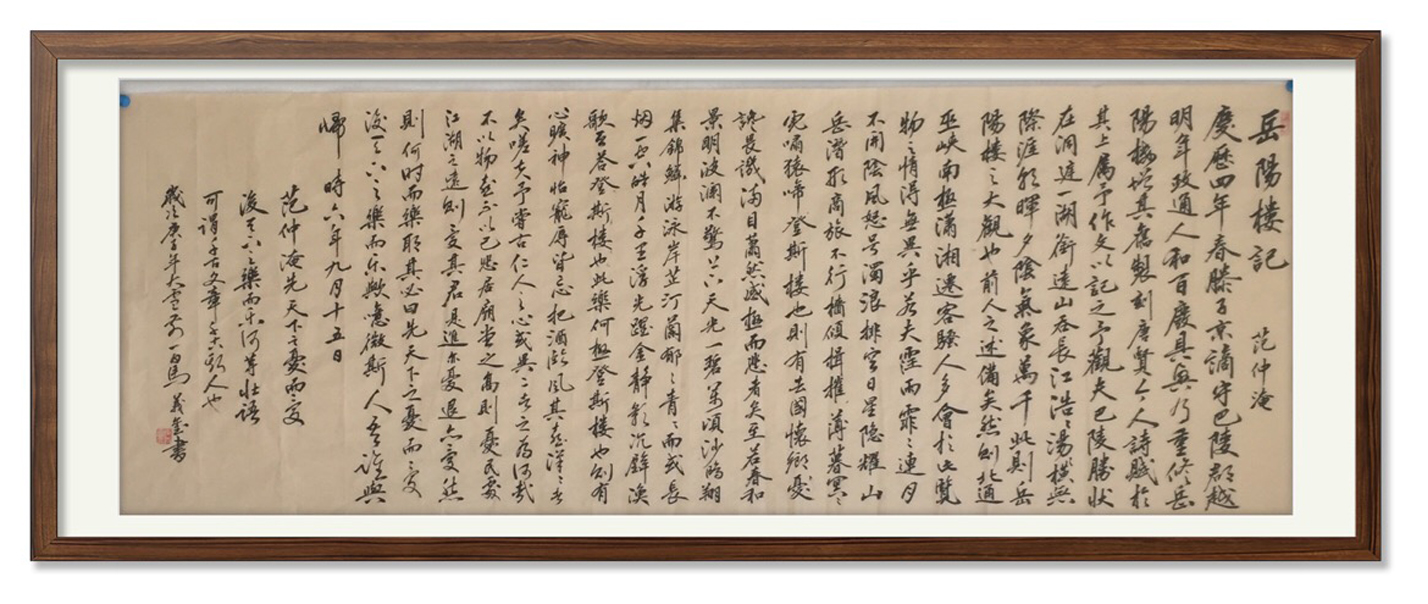 岳陽楼記 范仲淹
慶歷四年春滕子京謫守巴陵郡越
明年政通人和百廢具興乃重修岳
陽樓增其舊製刻唐賢今人詩賦於
其上属予作文以記之予觀夫巴陵勝狀
在洞庭一湖銜遠山吞長江浩〻湯〻橫無
際涯朝暉夕陰氣象萬千此則岳
陽樓之大觀也前人之述備矣然則北通
巫峽南極瀟湘遷客騷人多會於此覽
物之情得無異乎若夫霪雨霏〻連月
不開陰風怒号濁浪排空日星隐耀山
岳潛形商旅不行檣傾楫摧薄暮冥〻
虎嘯猿啼登斯楼也則有去國懷鄉憂
讒畏譏滿目蕭然感極而悲者矣至若春和
景明波瀾不驚上下天光一碧萬頃沙鷗翔
集錦鱗游泳岸芷汀蘭郁〻青〻而或長
烟一空皓月千里浮光躍金靜影沉璧漁
歌互答登斯楼也此樂何極登斯楼也則有
心曠神怡寵辱皆忘把酒臨風其喜洋〻者
矣嗟夫予嘗古仁人之心或異二者之為何哉
不以物喜不以己悲居廟堂之高則憂民處
江湖之遠則憂其君是進亦憂退亦憂然
則何时而樂耶其必曰先天下之憂而憂
後天下之樂而乐歟噫微斯人吾誰與
歸 時六年九月十五日
范仲淹先天下之憂而憂
後天下之樂而乐何等壯語
可謂千古文章千古人也
歲次庚子年大雪前一日馬義書